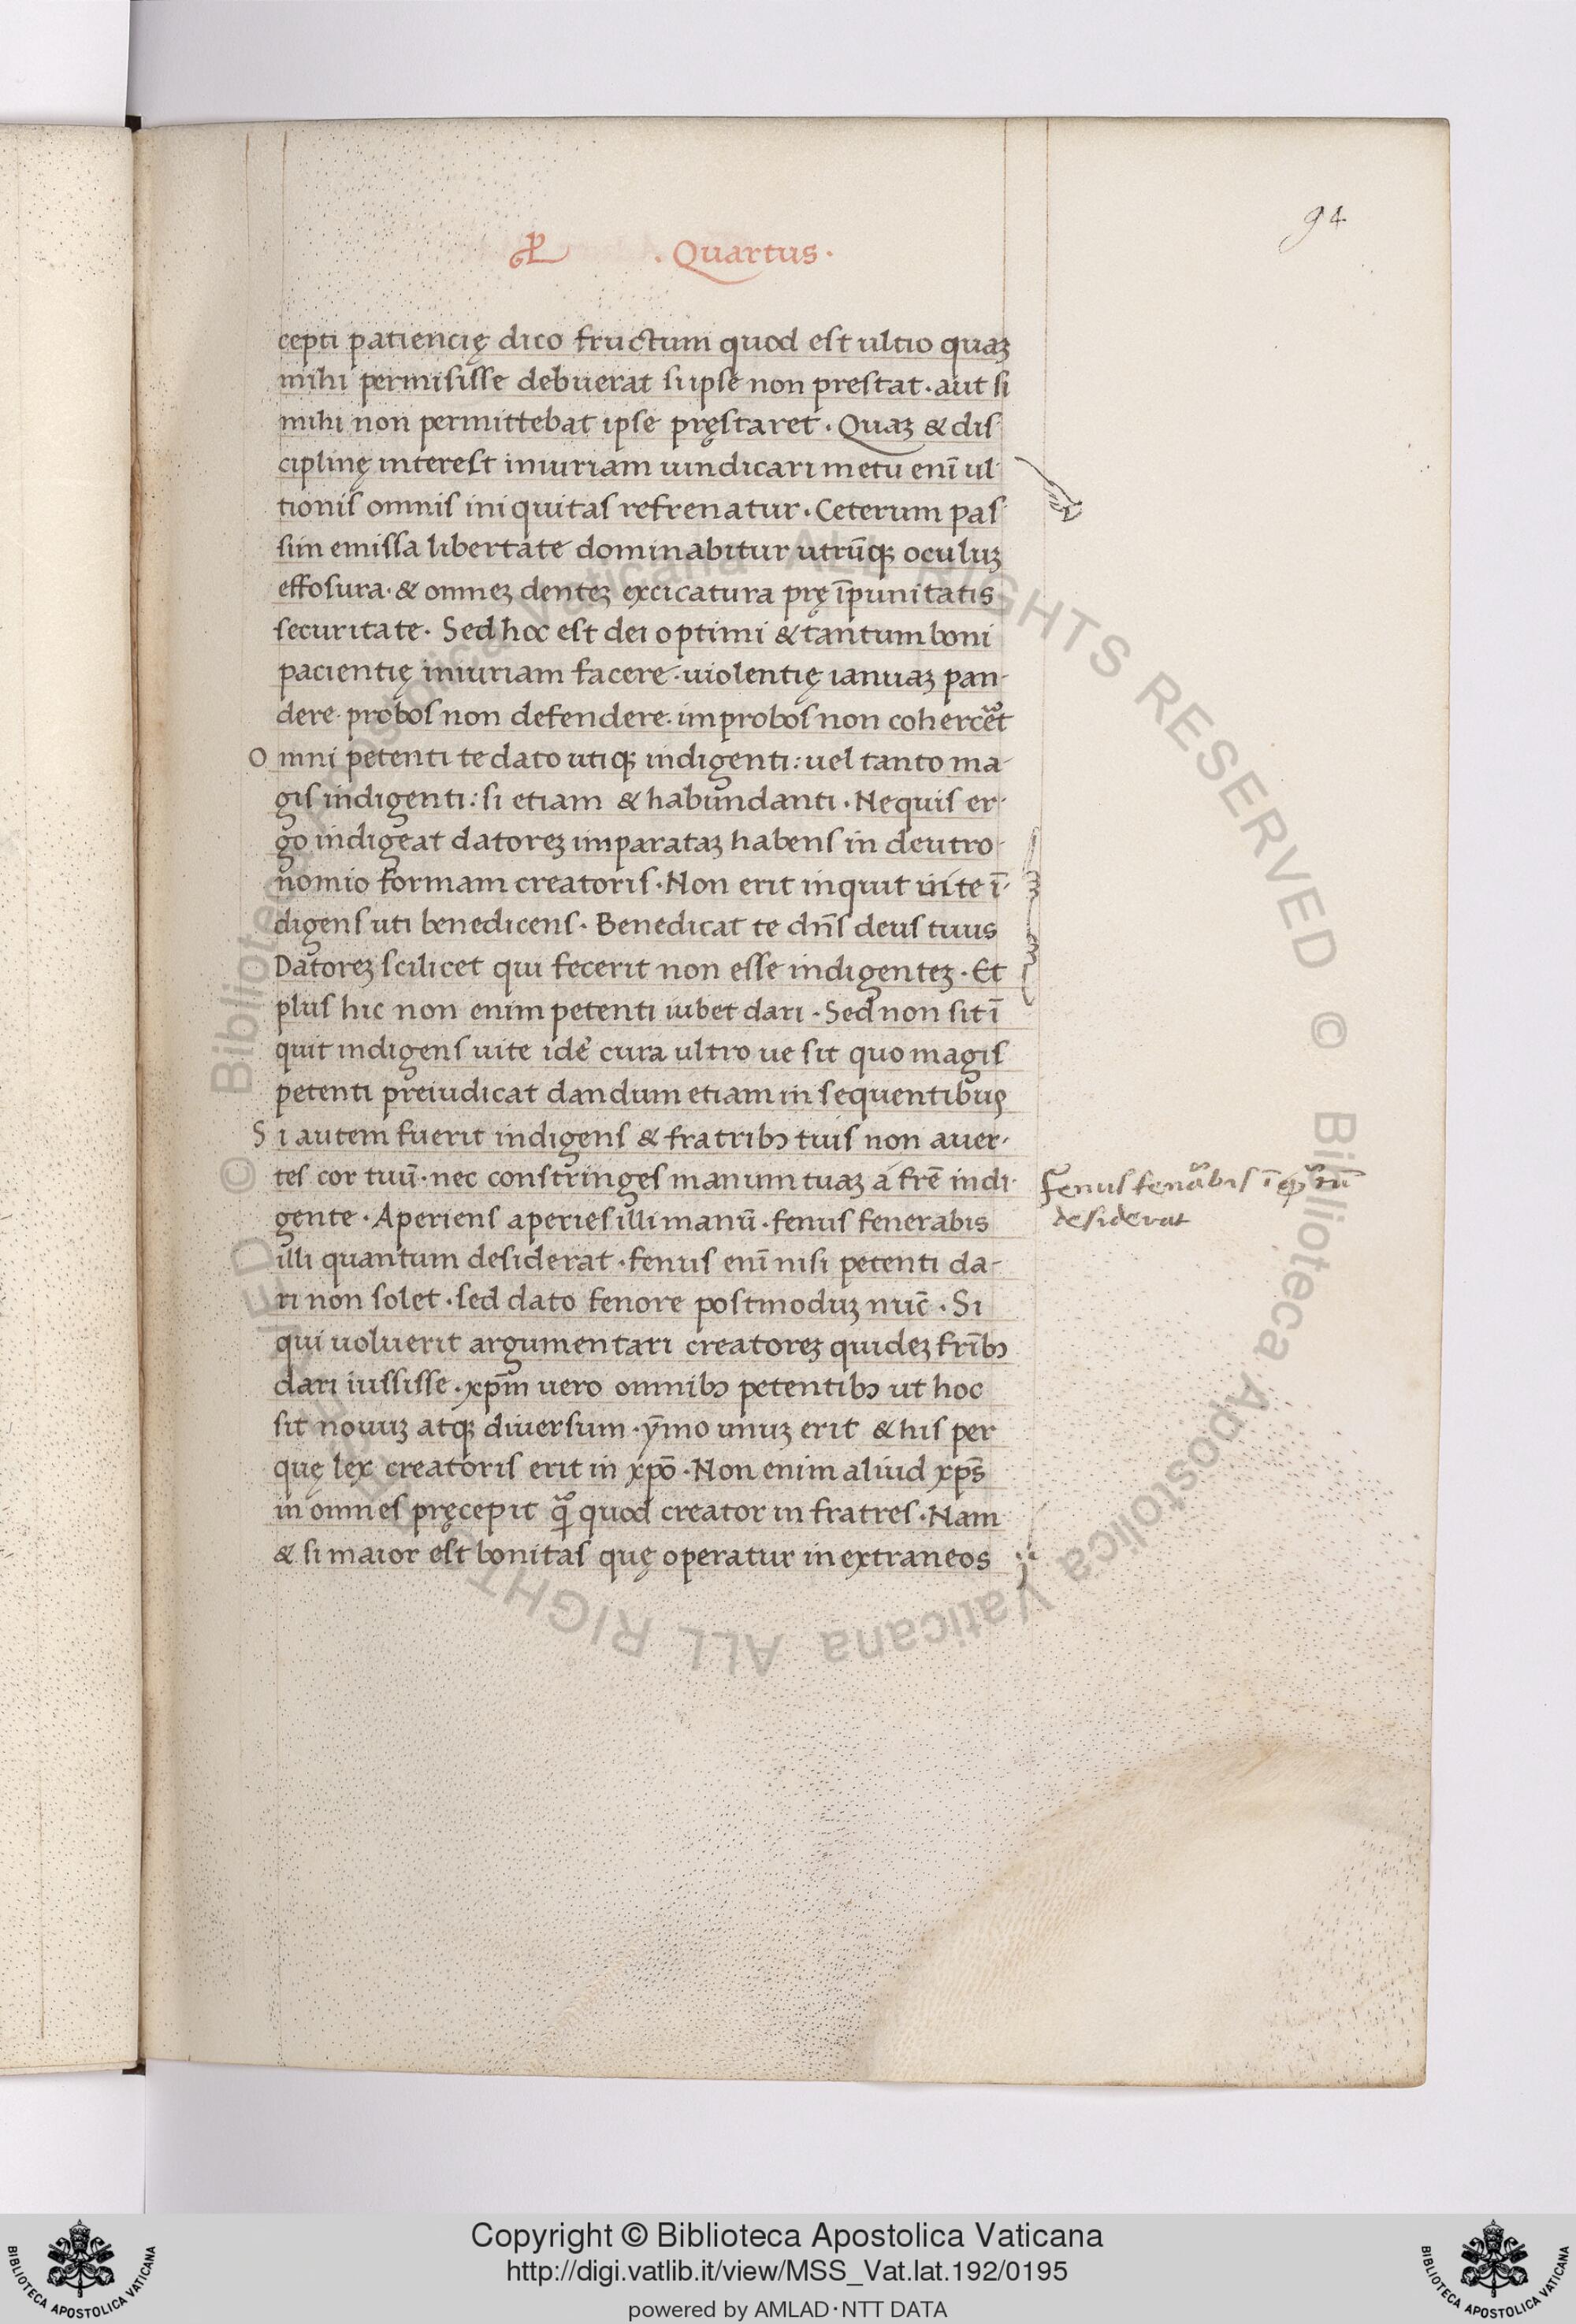 94
. Quartus .
cepti patiencię dico fructum quod est ultio quaꝫ
mihi permisisse debuerat si ipse non prestat · aut si
mihi non permittebat ipse pręstaret · Quaꝫ & dis-
ciplinę interest iniuriam uindicari metu eni̅ ul-
tionis omnis iniquitas refrenatur · Ceterum pas-
sim emissa libertate dominabitur utru̅qꝫ oculuꝫ
effosura · & omneꝫ denteꝫ excicatura prę i̅punitatis
securitate · Sed hoc est dei optimi & tantum boni
pacientię iniuriam facere · uiolentię ianuaꝫ pan-
dere · probos non defendere · improbos non cohercet
Omni petenti te dato utiqꝫ indigenti : uel tanto ma-
gis indigenti : si etiam & habundanti · Nequis er-
go indigeat datoreꝫ imparataꝫ habens in deutro-
nomio formam creatoris · Non erit inquit in te i̅-
digens uti benedicens · Benedicat te dn̅s deus tuus
Datoreꝫ scilicet qui fecerit non esse indigenteꝫ · Et
plus hic non enim petenti iubet dari · Sed non sit i̅
quit indigens uite ide̅ cura ultro ue sit quo magis
petenti preiudicat dandum etiam in sequentibus
Si autem fuerit indigens & fratribꝫ tuis non auer-
tes cor tuu̅ · nec constringes manum tuaꝫ á fre̅ indi-
gente · Aperiens aperies illi manu̅ · fenus fenerabis
illi quantum desiderat · fenus eni̅ nisi petenti da-
ri non solet · sed dato fenore postmoduꝫ nuc̅ · Si
qui uoluerit argumentari creatoreꝫ quideꝫ fri̅bꝫ
dari iussisse · xp̅m uero omnibꝫ petentibꝫ ut hoc
sit nouuꝫ atqꝫ diuersum · y̅mo unuꝫ erit & his per
quę lex creatoris erit in xpo̅ · Non enim aliud xp̅s
in omnes pręcepit qͣ quod creator in fratres · Nam
& si maior est bonitas quę operatur in extraneos
desiderat
© Biblioteca Apostolica Vaticana ALL RIGHTS RESERVED © Biblioteca Apostolica Vaticana ALL RIGHTS RESERVED
Copyright © Biblioteca Apostolica Vaticana
http://digi.vatlib.it/view/MSS_Vat.lat.192/0195
powered by AMLAD·NTT DATA
BIBLIOTECA APOSTOLICA VATICANA
BIBLIOTECA APOSTOLICA VATICANA